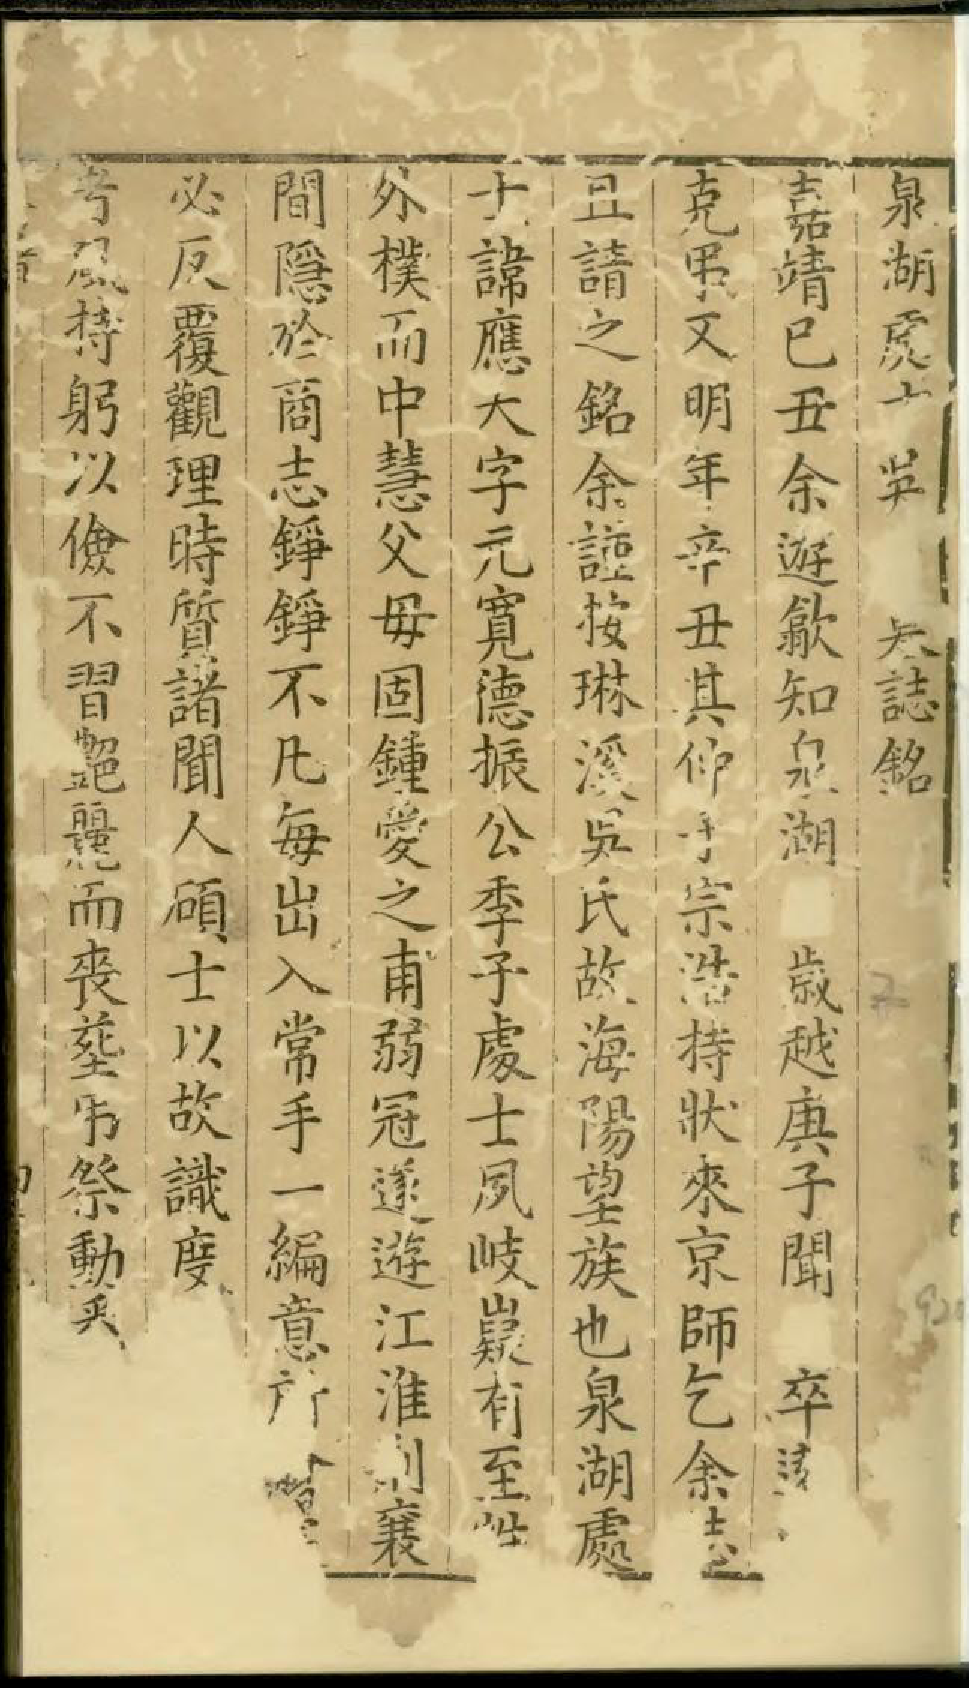 泉湖處士吳 矣誌銘
嘉靖巳丑余遊歙知泉湖 歲越庚子聞 卒
克弔又明年辛丑其仲子宗浩持狀來京師乞余志
且請之銘余謹按琳溪吳氏故海陽望族也泉湖處
士諱應大字元寬德振公季子處士夙岐嶷有至性
外樸而中慧父毋固鍾愛之甫弱冠遂遊江淮 襄
間隱於商志錚錚不凡每出入常手一編意所
必反覆觀理時質諸聞人碩士以故識度
持躬以儉不習艷麗而喪塟弔祭動